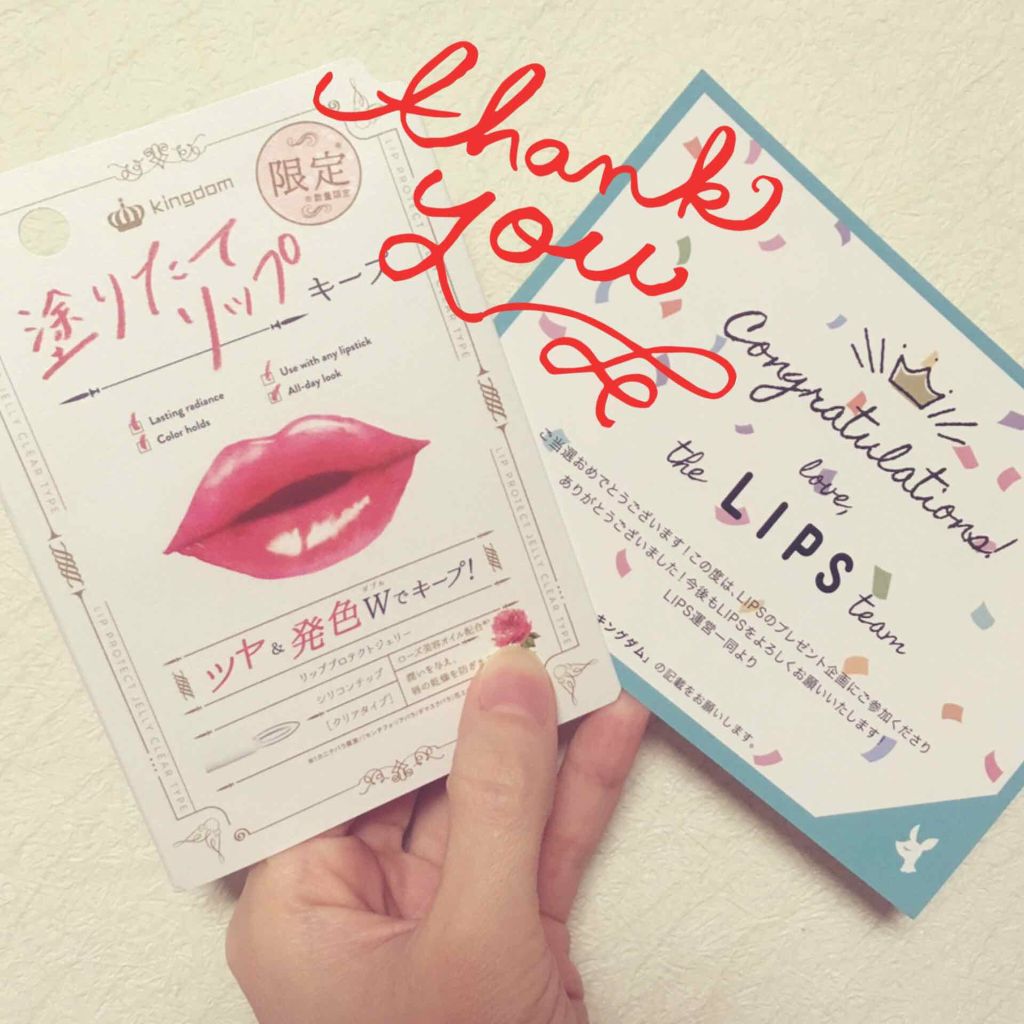 thank
you
kingdom
限定
※数量限定
塗りたて
リップ
キープ
Lasting radiance
Color holds
Use with any lipstick
All-day look
ツヤ&発色Wでキープ!
ダブル
リッププロテクトジェリー
シリコンチップ
[クリアタイプ]
ローズ美容オイル配合
潤いを与え、
唇の乾燥を防ぎま
LIP PROTECT JELLY CLEAR TYPE
JELLY CLEAR TYPE
LIP PROTECT JELLY CLEAR TYPE
Congratulations!
love,
the LIPS team
ご当選おめでとうございます!この度は、LIPSのプレゼント企画にご参加くださり
ありがとうございました!今後もLIPSをよろしくお願いいたします!
LIPS運営一同より
キングダム」の記載をお願いします。